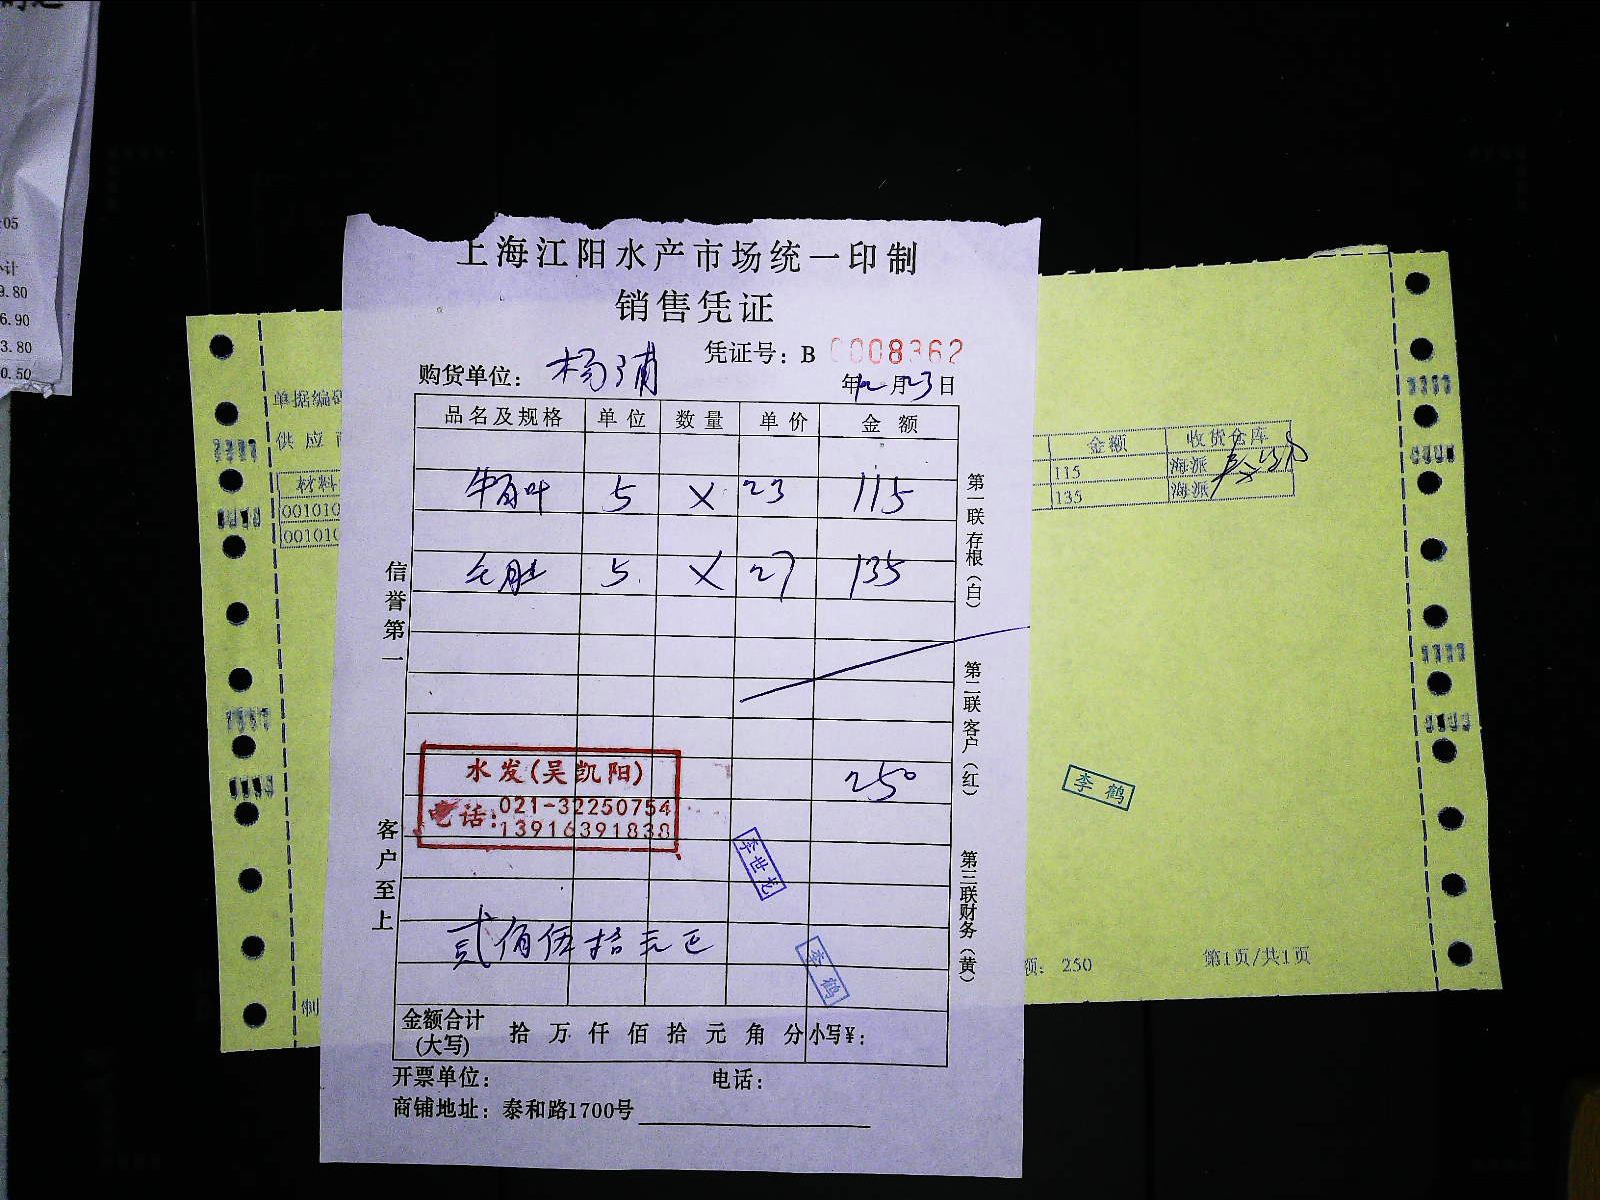 :05
小计
9.80
6.90
3.80
0.50
上海江阳水产市场统一印制
销售凭证
凭证号：B 0008362
购货单位：杨浦
年12月23日
品名及规格 单位 数量 单价 金额
牛百叶 5 X 23 115
5 X 27 135
250
水发(吴凯阳)
电话:021-32250754
13916391838
李世龙
贰佰伍拾元正
李鹤
金额合计(大写) 拾 万 仟 佰 拾 元 角 分 小写¥：
开票单位： 电话：
商铺地址：泰和路1700号
信誉第一
客户至上
第一联存根（白）
第二联客户（红）
第三联财务（黄）
单据编码
供应商
材料
001010
001010
金额 收货仓库
115 海派
135 海派
李鹤
额：250
第1页/共1页
制